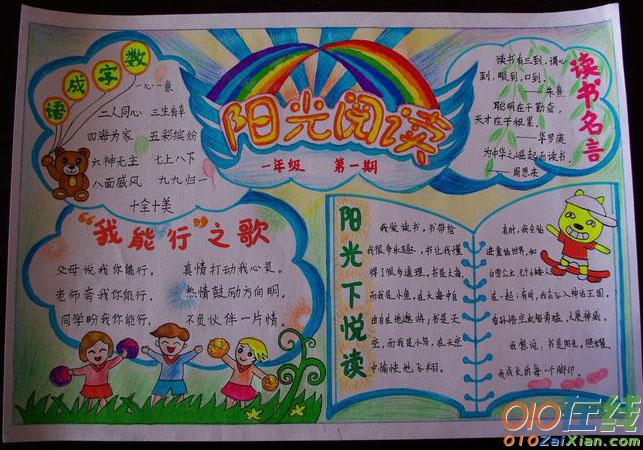 数字成语
一心一意
二人同心 三生有幸
四海为家 五彩缤纷
六神无主 七上八下
八面威风 九九归一
十全十美
阳光阅读
一年级 第一期
读书名言
读书有三到,谓心
到,眼到,口到。
——朱熹
聪明在于勤奋,
天才在于积累。
——华罗庚
为中华之崛起而读书。
——周恩来
“我能行”之歌
父母说我你能行,
真情打动我心裳。
老师夸我你能行,
热情鼓励方向明。
同学盼我你能行,
不负伙伴一片情。
阳光下悦读
我爱读书,书带给
我很多乐趣,书让我懂
得了很多道理。书是大海
而我是小鱼,在大海中自
由自在地遨游;书是天
空,而我是小鸟,在天空
中愉快地飞翔。
有时,我会钻
进童话世界,和
白雪公主
在一起;有时,我会飞入神话王国,
和孙悟空
我想说,书是阳光,照耀
我成长的每一个脚印。
010在线
010ZaiXian.com